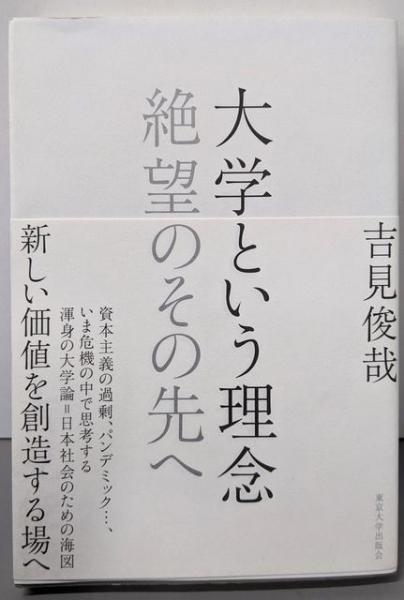 大学という理念
絶望のその先へ
吉見俊哉
東京大学出版会
資本主義の過剰、パンデミック…、
いま危機の中で思考する
渾身の大学論=日本社会のための海図
新しい価値を創造する場へ